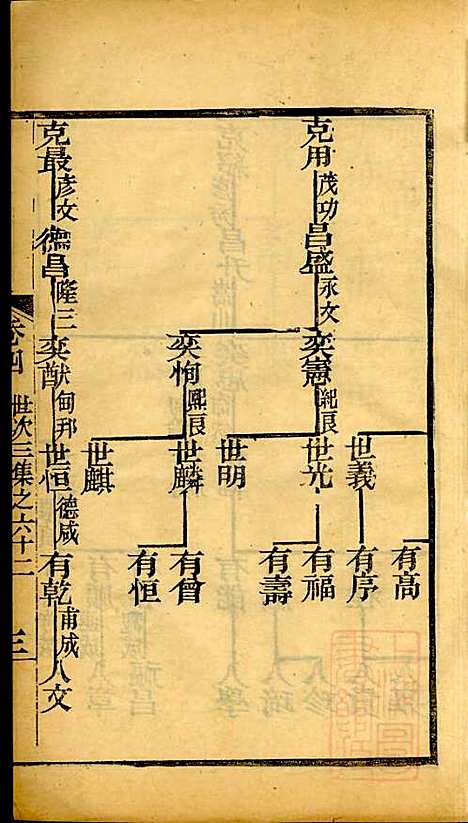 克用茂功昌盛永文奕憲紀良世光有福
世義有序
有高
有壽
世明
奕恂熙良世麟有曾
有恒
世麒
克最彥文德昌隆三奕猷甸邦世恒德咸有乾甫成人文
卷四 世次三集之六十二 三